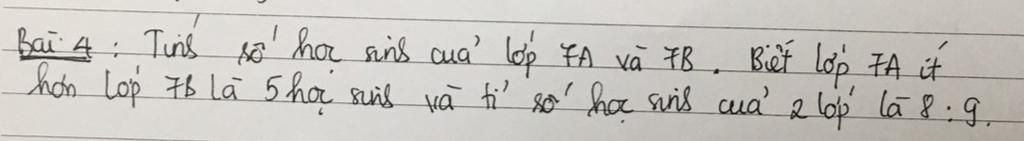 Bài 4 : Tính số học sinh của lớp 7A và 7B. Biết lớp 7A ít
hơn lớp 7B là 5 học sinh và tỉ số học sinh của 2 lớp là 8 : 9.